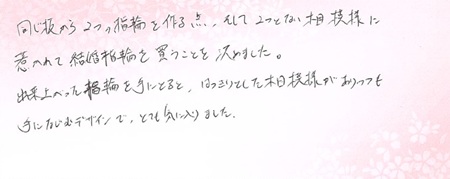 同じ板から2つの指輪を作る点、そして2つとない木目模様に
惹かれて結婚指輪を買うことを決めました。
出来上がった指輪を手にとると、はっきりとした木目模様がありつつも
手になじむデザインで、とても気に入りました。